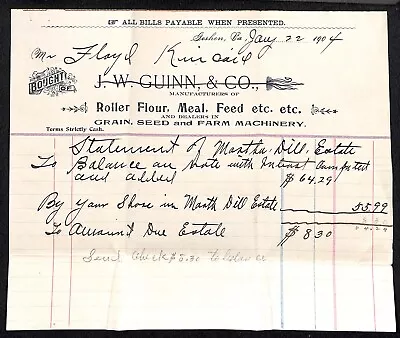 ALL BILLS PAYABLE WHEN PRESENTED.
Goshen, Va, Jany 22 1904
Mr Floyd Kincaid
BOUGHT OF
J. W. GUINN, & CO.,
MANUFACTURERS OF
Roller Flour, Meal, Feed etc. etc.
AND DEALERS IN
GRAIN, SEED and FARM MACHINERY.
Terms Strictly Cash.
Statement of Martha Dill Estate
To Balance on Note with Interest Computed
and added $ 64.29
By your Share in Marth Dill Estate 55.99
To Amount Due Estate $ 8.30
Send Check $ 5.30 to